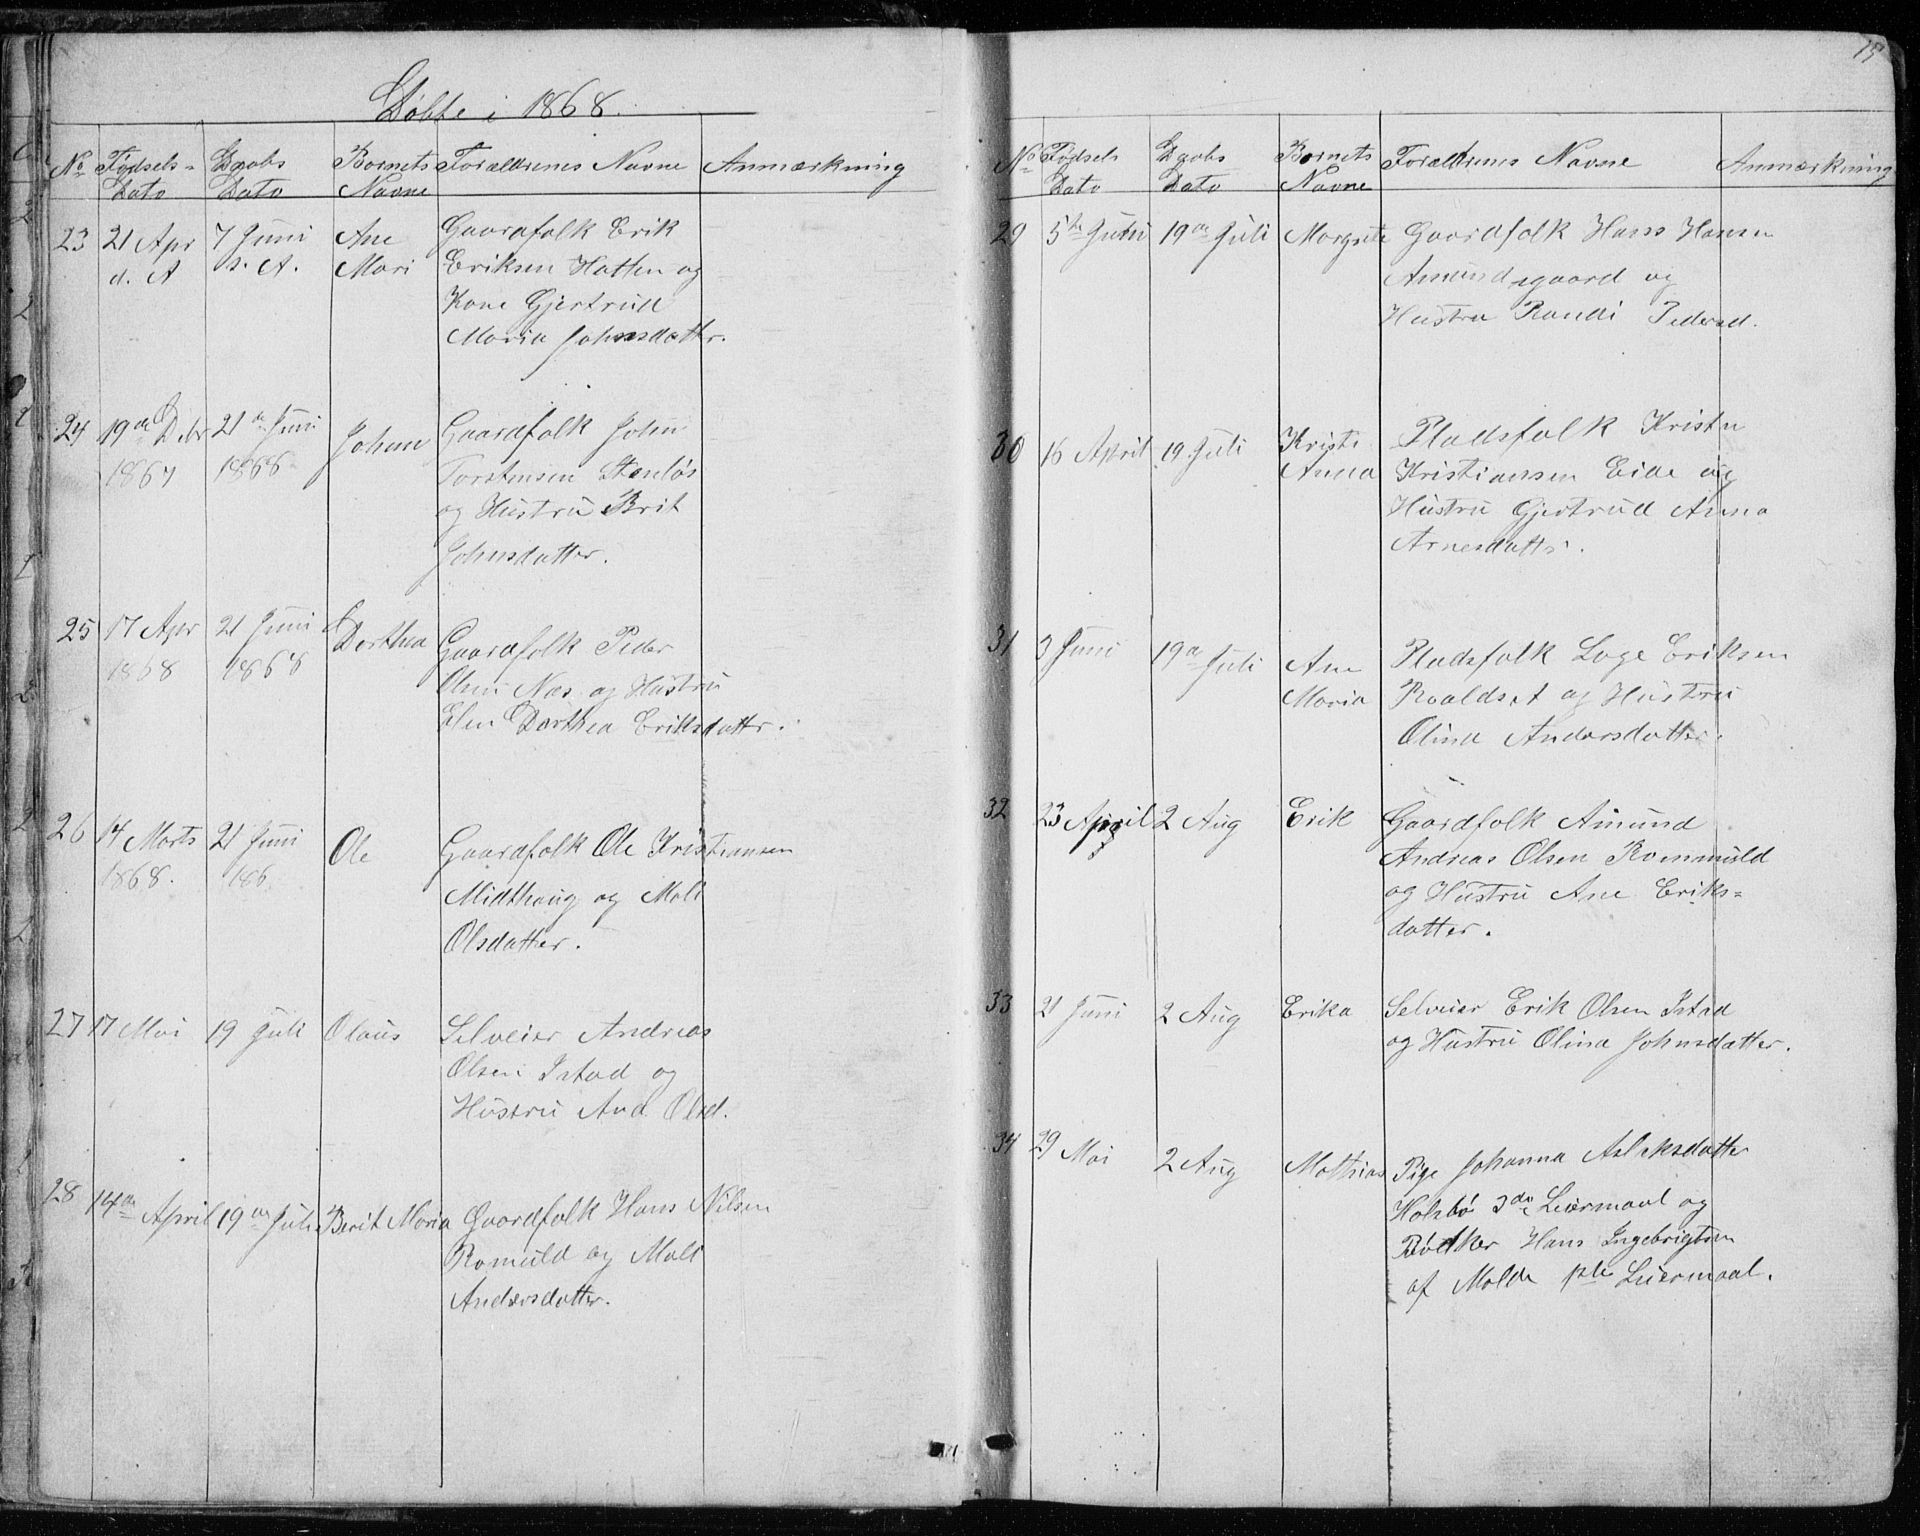 15
Döbte i 1868.
No Fødsels- Daabs Bornets Forældrenes Navne Anmærkning
Dato Dato Navne
23 21 Apr 7 Juni Ane Gaardfolk Erik
d. A s. A. Mari Eriksen Hatten og
Kone Gjertrud
Maria Johnsdatter.
24 19de Debr 21de Juni Johan Gaardfolk John
1867 1868 Torstensen Stenløs
og Hustru Brit
Johnsdatter.
25 17 Apr 21 Juni Dorthea Gaardfolk Peder
1868 1868 Olsen Næs og Hustru
Elen Dorthea Eriksdattr.
26 14 Marts 21 Juni Ole Gaardfolk Ole Kristiansen
1868. 186 Midthaug og Malt
Olsdatter.
27 17 Mai 19 Juli Olaus Selveier Andreas
Olsen Istad og
Hustru Ana Olsd.
28 14de April 19de Juli Berit Maria Gaardfolk Hans Nilsen
Romuld og Malt
Andersdatter.
No Fødsels Daabs Bornets Forældrenes Navne Anmærkning
Dato Dato Navne
29 5te Juni 19de Juli Margrete Gaardfolk Hans Hansen
Amundsgaard og
Hustru Randi Pedersd.
30 16 April 19 Juli Kristi Pladsfolk Kristen
Anna Kristiansen Eide og
Hustru Gjertrud Anna
Arnesdattr.
31 3 Juni 19de Juli Ane Pladsfolk Lage Eriksen
Maria Roaldset og Hustru
Olina Andersdatter.
32 23 April 2 Aug Erik Gaardfolk Amund
Andreas Olsen Rommuld
og Hustru Ane Eriks-
datter.
33 21 Juni 2 Aug Erika Selveier Erik Olsen Istad
og Hustru Olina Johnsdatter.
34 29 Mai 2 Aug Mathias Pige Johanna Aslaksdatter
Holsbø 3de Leiermaal og
Bødker Hans Ingebrigtsen
af Molde 1ste Leiermaal.